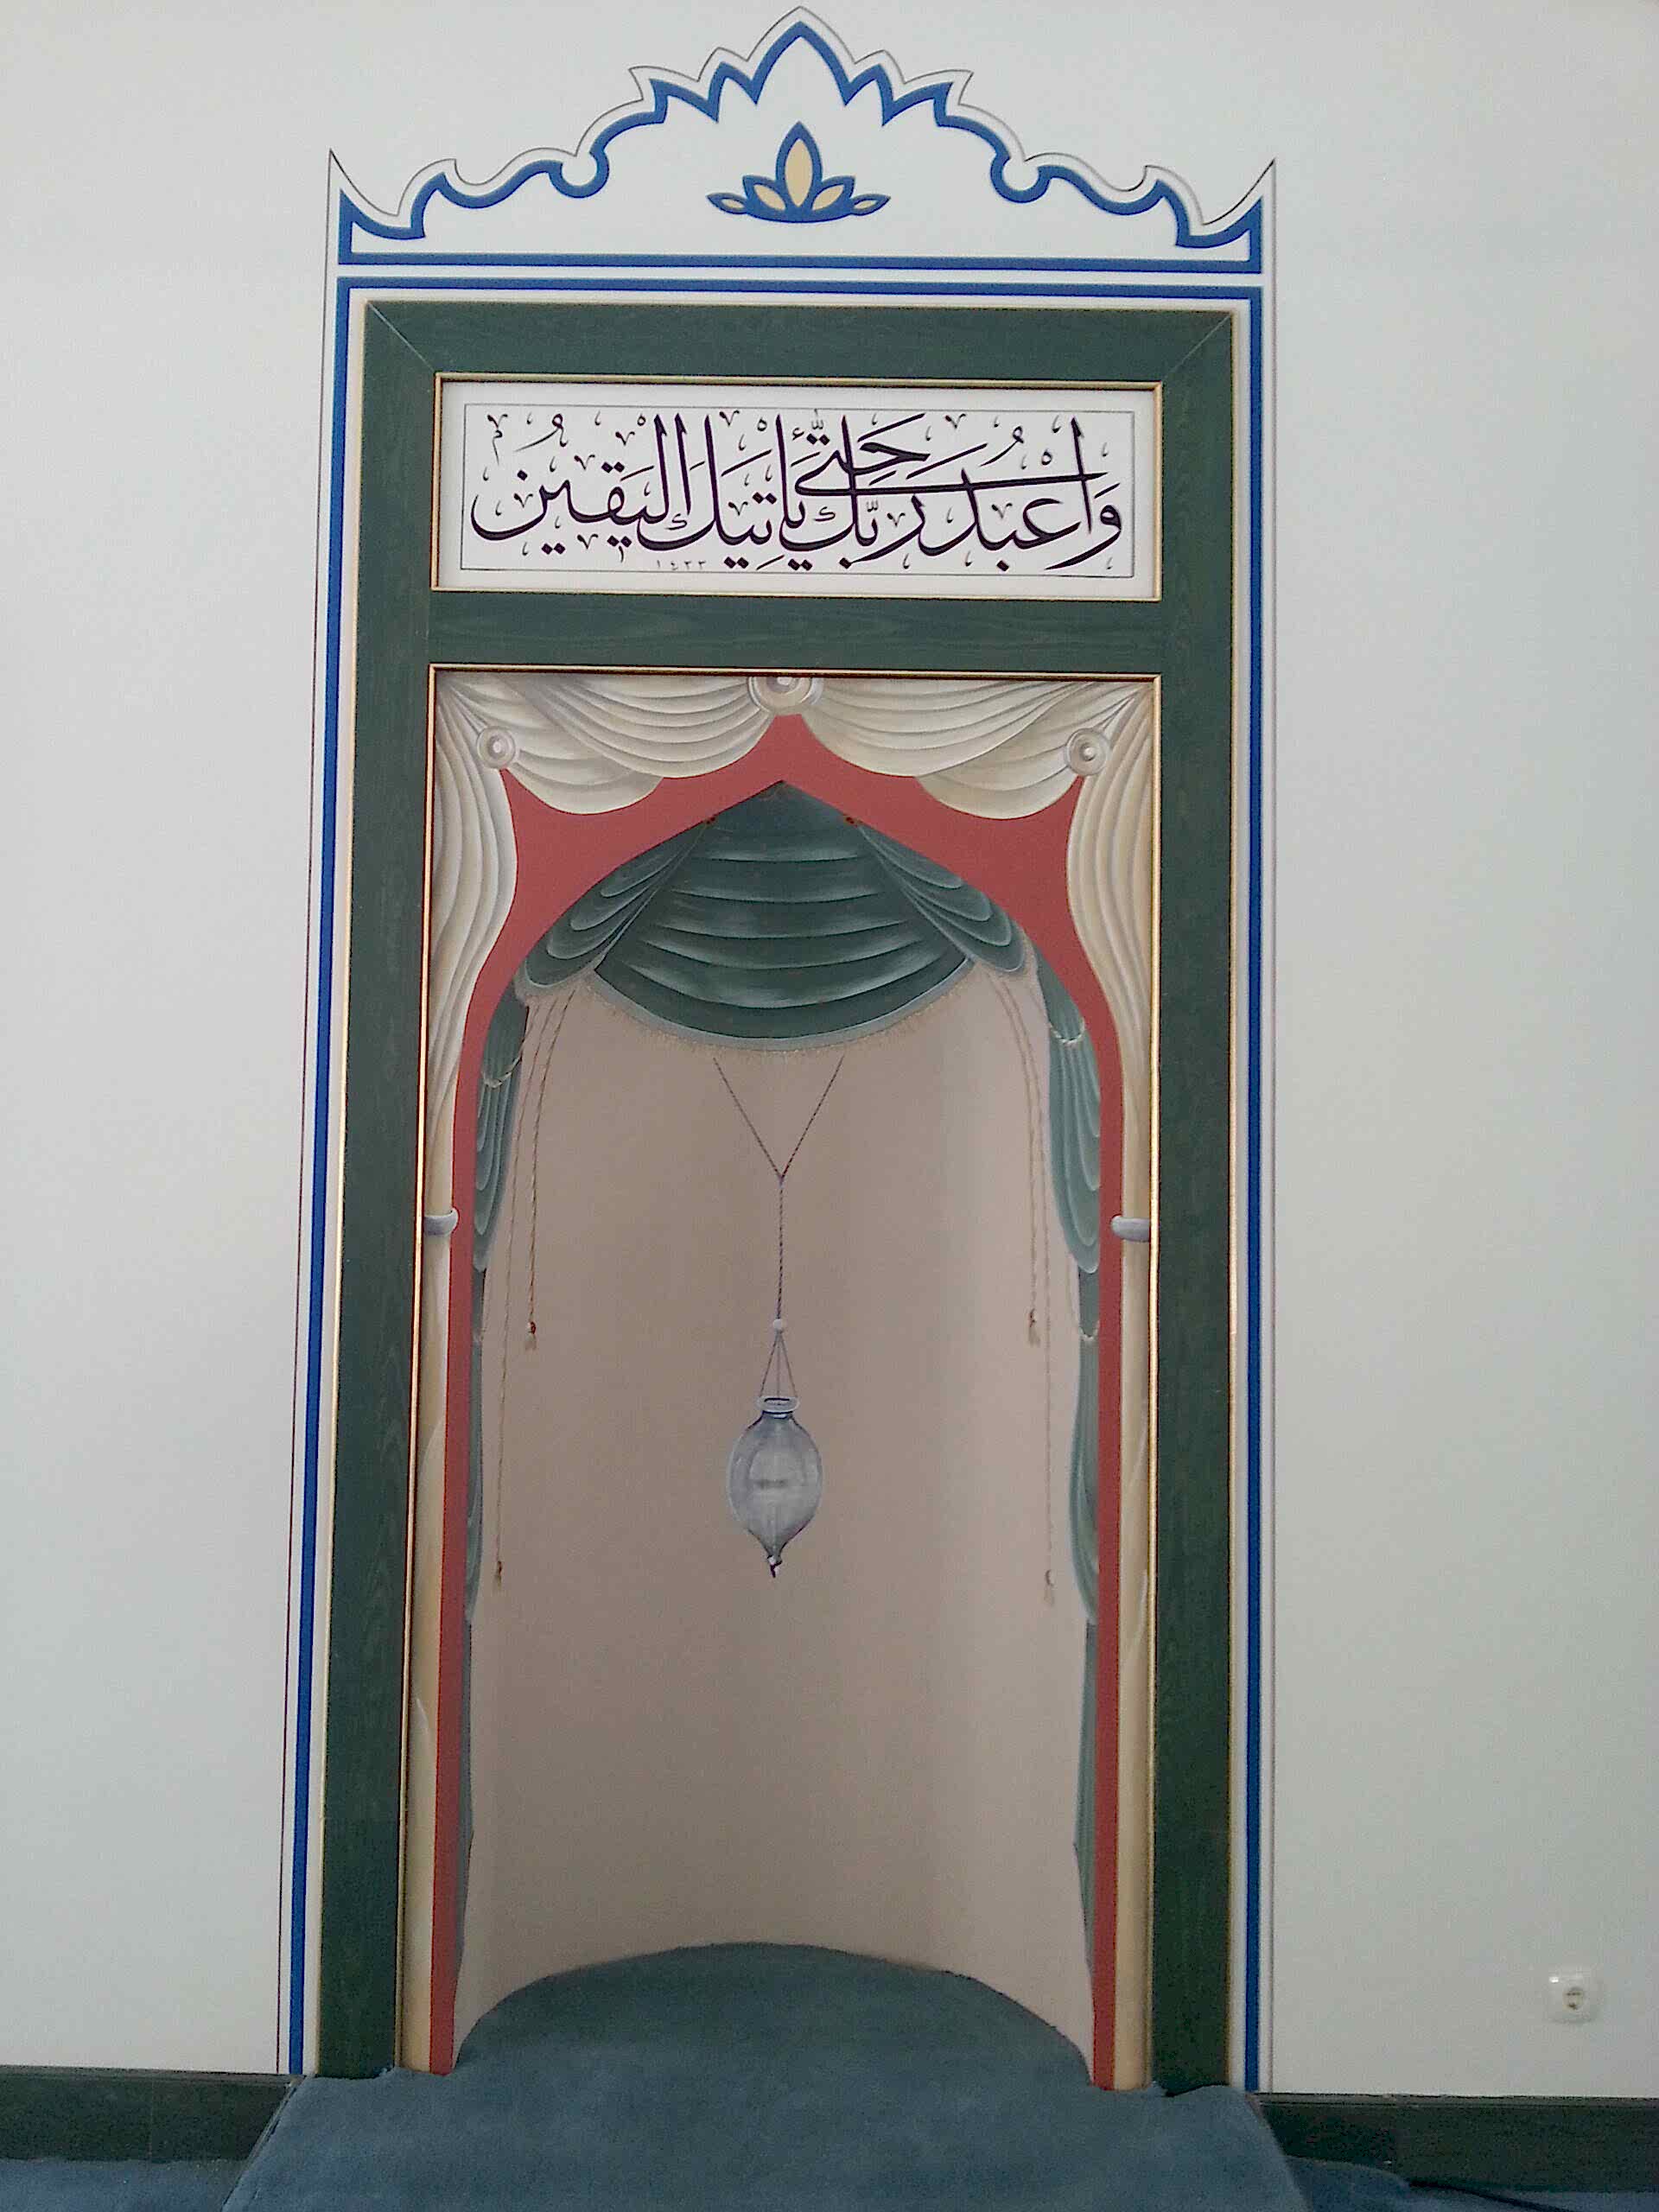 وَاعْبُدْ رَبَّكَ حَتّٰى يَأْتِيَكَ الْيَقِينُ
١٤٣٣